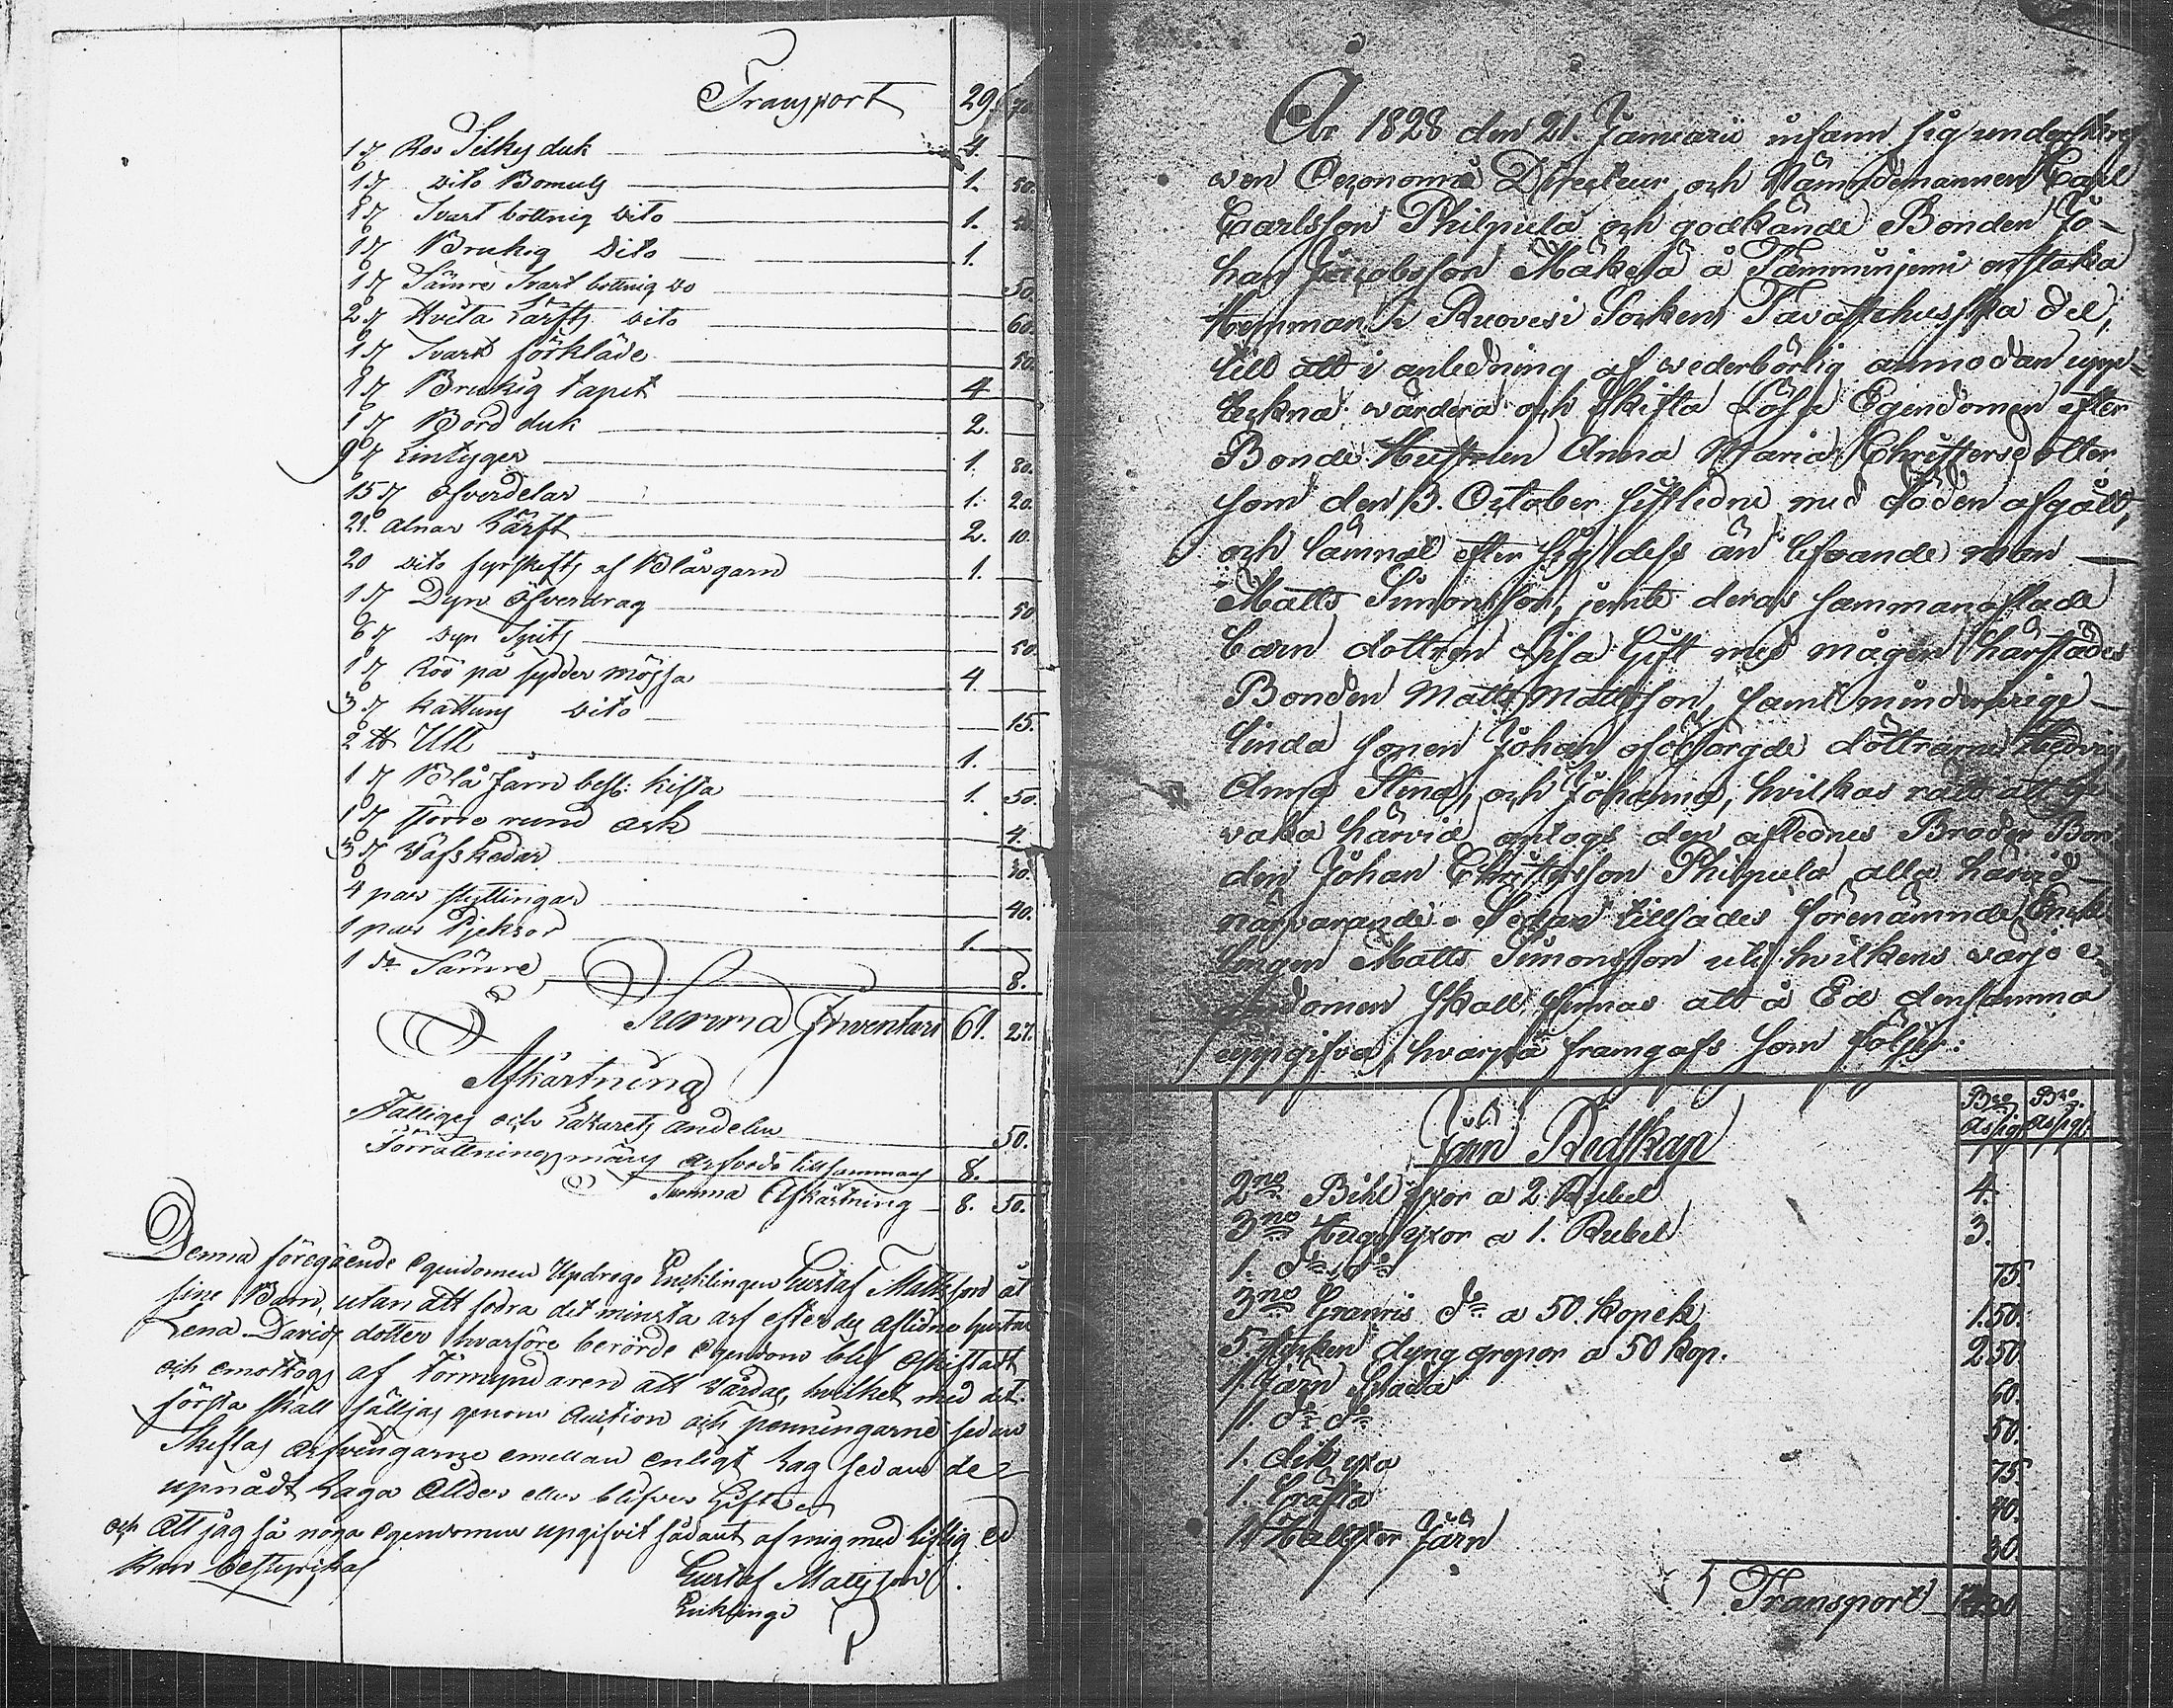 Transport 29. 70.
1 st Ros Silkes duk 4.
1 st dito Bomuls 1. 50.
1 st Svart bottnig dito 1. 40.
1 st Brukig dito 1.
1 st Sämre Svart bottnig do 50.
2 st Hvita Lärfts dito 60.
1 st Svart förkläde 50.
1 st Brukig tapet 4
1 st Bord duk 2.
9 st Lintyger 1. 80.
15 st öfverdelar 1. 20.
21. alnar Lärft 2. 10.
20 dito fyrskefts af Blårgarn 1.
1 st Dyn öfverdrag 50
6 st dyn 50.
1 st Röd på sydder mössa 4.
3 st Kattuns dito 15.
2 ℔ Ull 1.
1 st Blå Järn besl: kista 1. 50.
1 st större rund ask 4.
3 st Väfskedar 30.
4 par styttingar 40.
1 par Pjeksor 1.
1 do Sämre 8.
Summa Inventari 61. 27.
Afkårtning
Fattiges och Lazarets andelen 50.
Förrättningsmäns arfvode tillsammans 8.
Summa Afkårtning 8. 50.
Denna föregående egendomen Updrogo Encklingen Gustaf Mattsson åt
sine Barn, utan att fodra det minsta arf efter des aflidne hustru
Lena Davids dotter hvarföre berörde egendom blef Oskiftadt
och emottogs af Förmyndaren att Vårdas, hvilket med det
första skall säljas genom Auction och penningarne sedan
Skiftas arfvingarne emellan enligt Lag sedan de
upnådt Laga Ålder eller blifver Gifte
och Att jag så noga egendomen upgifvit sådant af mig med Liflig ed
kan bestyrkas
Gustaf Mattsson
Enklinge
År 1828 den 21. Januarii infann sig underskref
ven Oeconomie Directeur och Nämndemannen Carl
Carlsson Philpula och godkände Bonden Jo-
han Jacobsson Mäkelä å Tammunjemi enstaka
Hemman i Ruovesi Socken, Tavastehusska del,
till att i anledning af wederbörlig anmodan upp-
tekna wärdera och skifta Lösa Egendomen efter
Bonde Hustrun Anna Maria Christersdotter
som den 13. October sistledne med döden afgått,
och lämnat efter sig dess än lefvande man
Matts Simonsson, jemte deras sammanaflade
barn dottren Lisa Gift med mågen härstädes
Bonden Matts Mattsson, samt minderårige
linda sonen Johan oförsörgde döttrarne Hedvig
Anna Stina, och Johanna, hvilkas rätt att be
vaka härvid antogs den aflednes Broder Bon
den Johan Christersson Philpula alla härvid
närvarande. Sedan tillsades förenämnde Enck
lingen Matts Simonsson uti hvilkens värjo e-
gendomen skall finnas att å Ed densamma
uppgifva, hvarpå framgafs som följer:
Bco Assig. Bco. Assigt.
Järn Redskap
2no Bihl yxor a 2 Rubel 4.
3no Hugg yxor a 1. Rubel 3.
1. do do 75.
3no do a 50. Kopek 1.50.
5. stycken dyng grepor a 50 Kop. 2.50.
1. Järn Spada 60.
1. do do 50.
1. dik yxa 75.
1. Gräfta 40.
1. Järn 30.
Transport